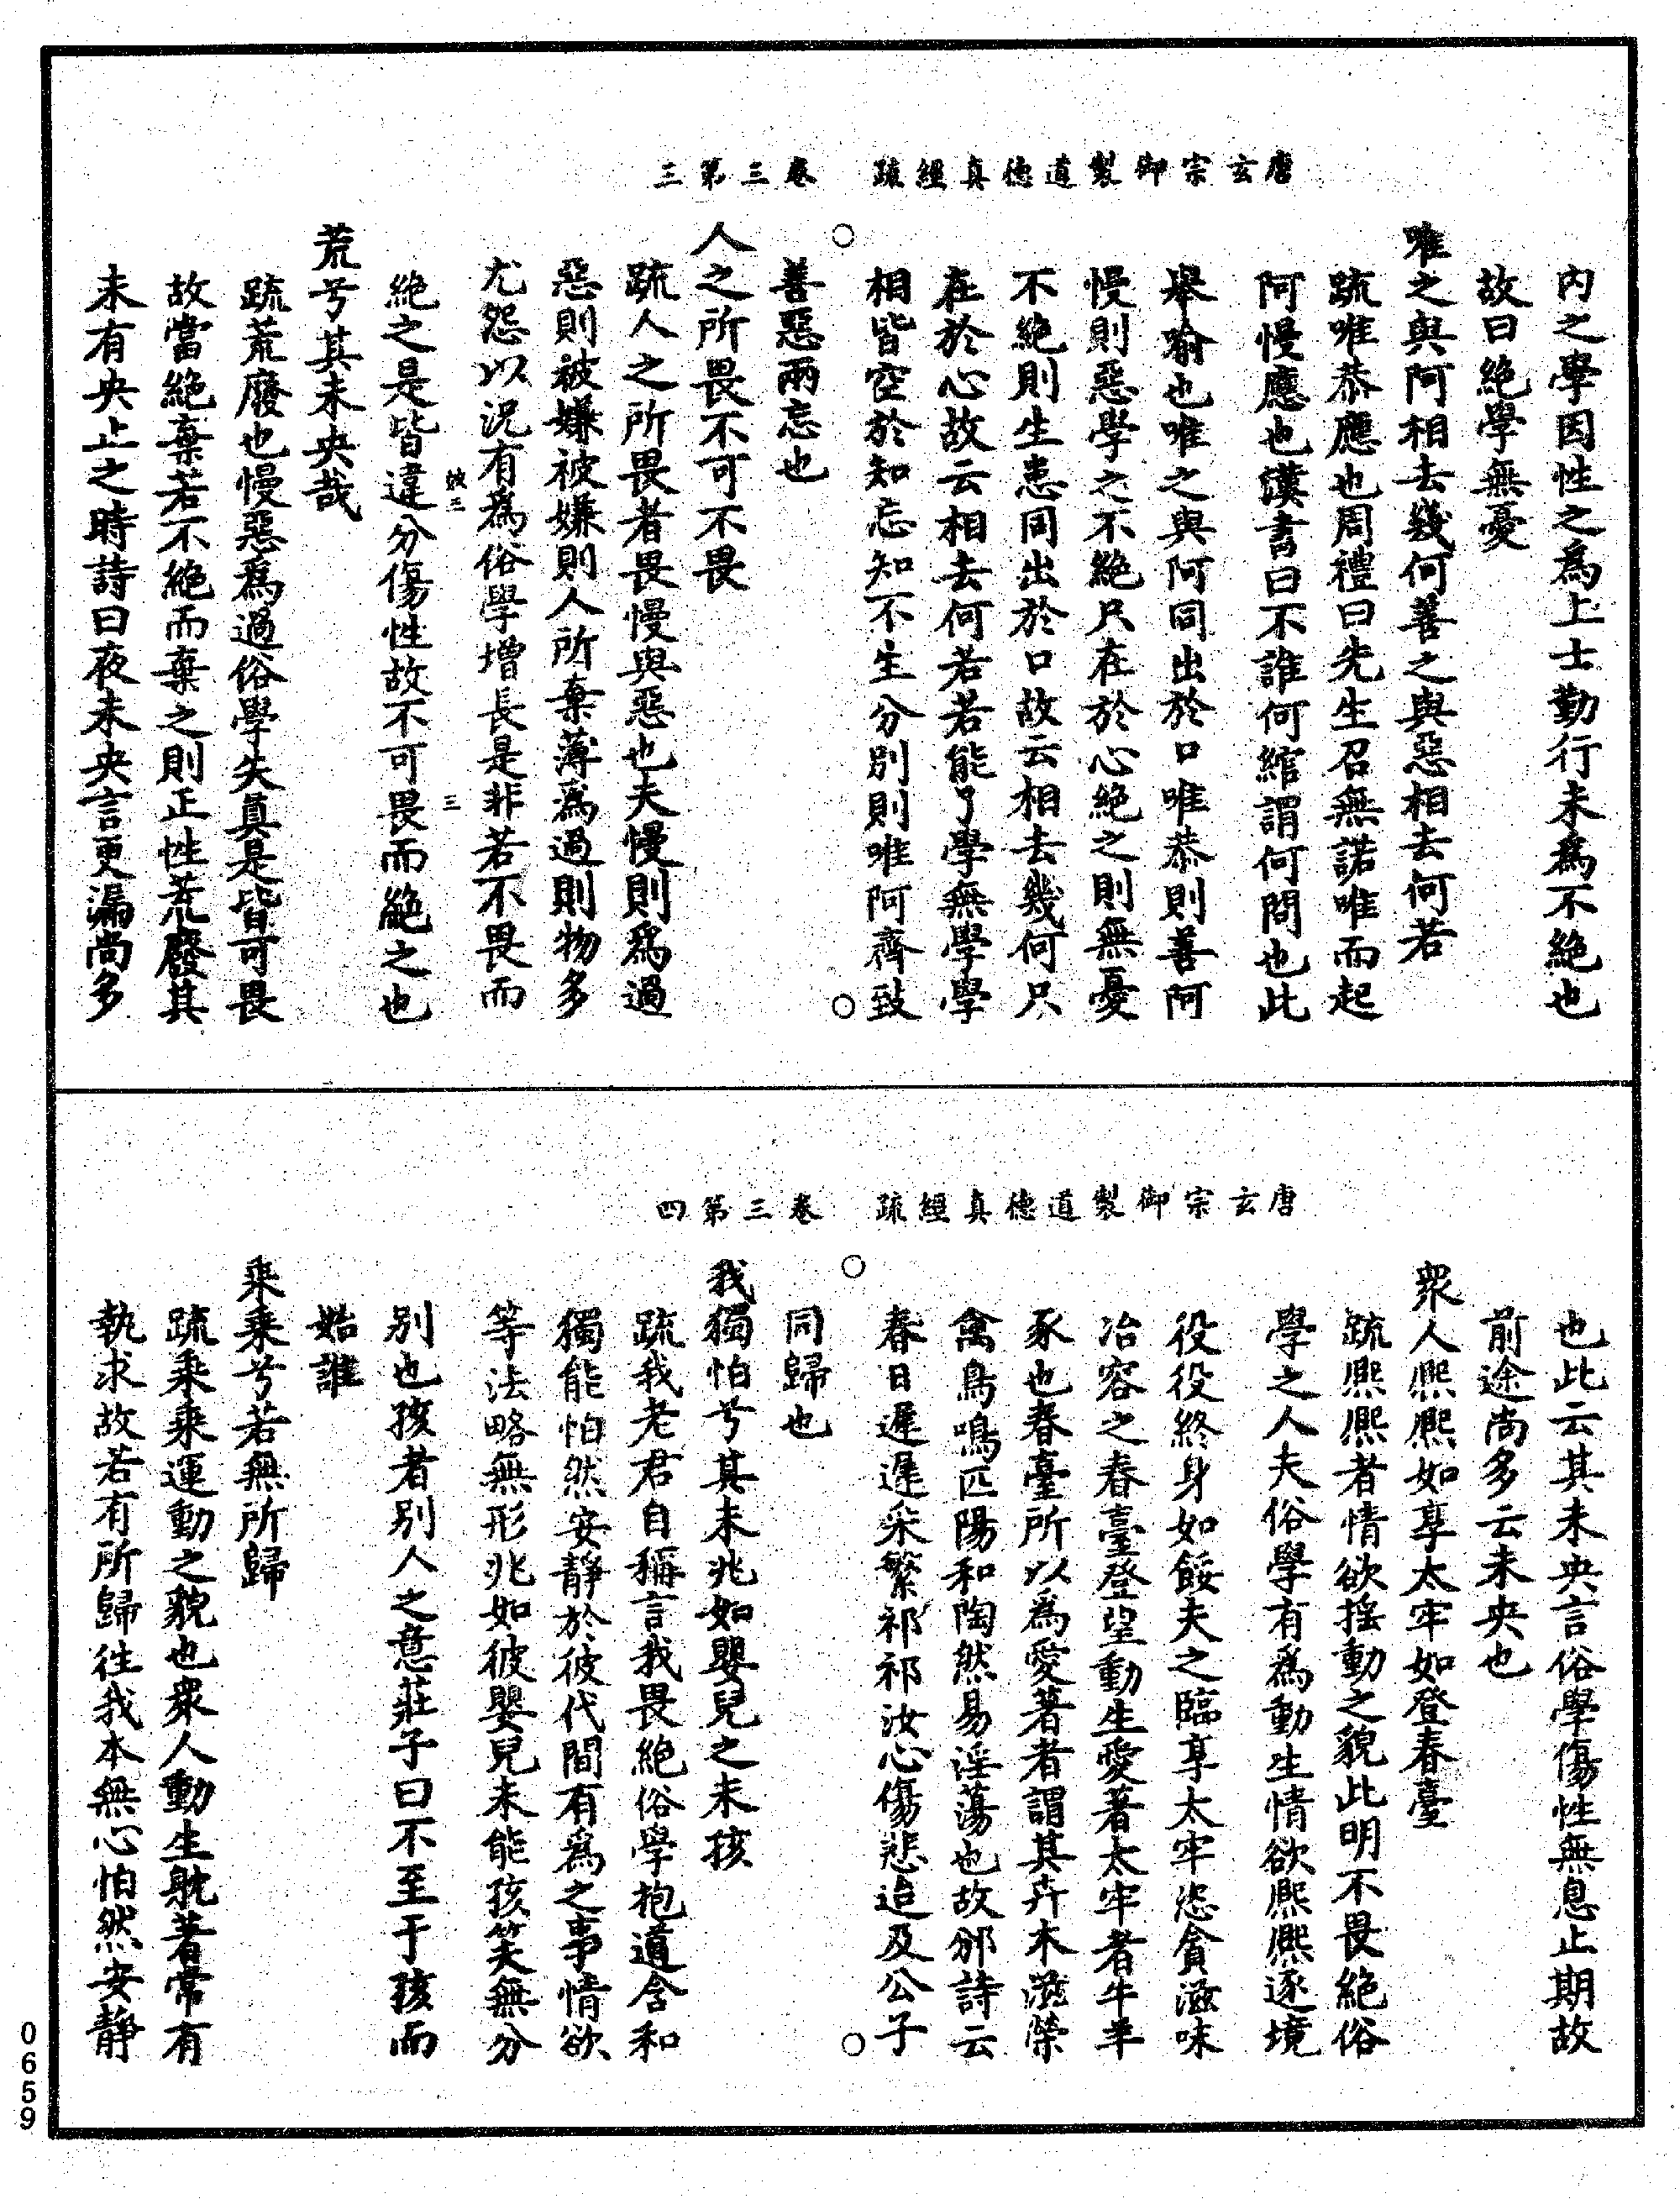 唐玄宗御製道德真經疏　卷三第三
內之學因性之為上士勤行未為不絕也
故曰絕學無憂
唯之與阿相去幾何善之與惡相去何若
疏唯恭應也周禮曰先生召無諾唯而起
阿慢應也漢書曰不誰何綰謂何問也此
舉喻也唯之與阿同出於口唯恭則善阿
慢則惡學之不絕只在於心絕之則無憂
不絕則生患同出於口故云相去幾何只
在於心故云相去何若若能了學無學學
相皆空於知忘知不生分別則唯阿齊致
善惡兩忘也
人之所畏不可不畏
疏人之所畏者畏慢與惡也夫慢則為過
惡則被嫌被嫌則人所棄薄為過則物多
尤怨以況有為俗學增長是非若不畏而
三
絕之是皆違分傷性故不可畏而絕之也
荒兮其未央哉
疏荒廢也慢惡為過俗學失真是皆可畏
故當絕棄若不絕而棄之則正性荒廢其
未有央止之時詩曰夜未央言更漏尚多
唐玄宗御製道德真經疏　卷三第四
也此云其未央言俗學傷性無息止期故
前途尚多云未央也
眾人熙熙如享太牢如登春臺
疏熙熙者情欲搖動之貌此明不畏絕俗
學之人夫俗學有為動生情欲熙熙逐境
役役終身如餒夫之臨享太牢恣貪滋味
冶容之春臺登望動生愛著太牢者牛羊
豕也春臺所以為愛著者謂其卉木滋榮
禽鳥鳴匹陽和陶然易淫蕩也故邠詩云
春日遲遲采蘩祁祁汝心傷悲迨及公子
同歸也
我獨怕兮其未兆如嬰兒之未孩
疏我老君自稱言我畏絕俗學抱道含和
獨能怕然安靜於彼代間有為之事情欲
等法略無形兆如彼嬰兒未能孩笑無分
別也孩者別人之意莊子曰不至于孩而
始誰
乘乘兮若無所歸
疏乘乘運動之貌也眾人動生躭著常有
執求故若有所歸往我本無心怕然安靜
0659